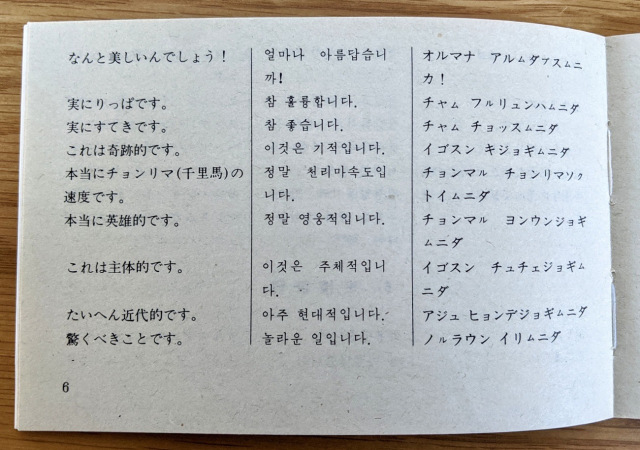 なんと美しいんでしょう！ 얼마나 아름답습니 オルマナ アルムダァスムニ
까! カ！
実にりっぱです。 참 훌륭합니다. チャム フルリュンハムニダ
実にすてきです。 참 좋습니다. チャム チョッスムニダ
これは奇跡的です。 이것은 기적입니다. イゴスン キジョギムニダ
本当にチョンリマ(千里馬)の 정말 천리마속도입 チョンマル チョンリマソク
速度です。 니다. トイムニダ
本当に英雄的です。 정말 영웅적입니다. チョンマル ヨンウンジョギ
ムニダ
これは主体的です。 이것은 주체적입니 イゴスン チュチェジョギム
다. ニダ
たいへん近代的です。 아주 현대적입니다. アジュ ヒョンデジョギムニダ
驚くべきことです。 놀라운 일입니다. ノルラウン イリムニダ
6